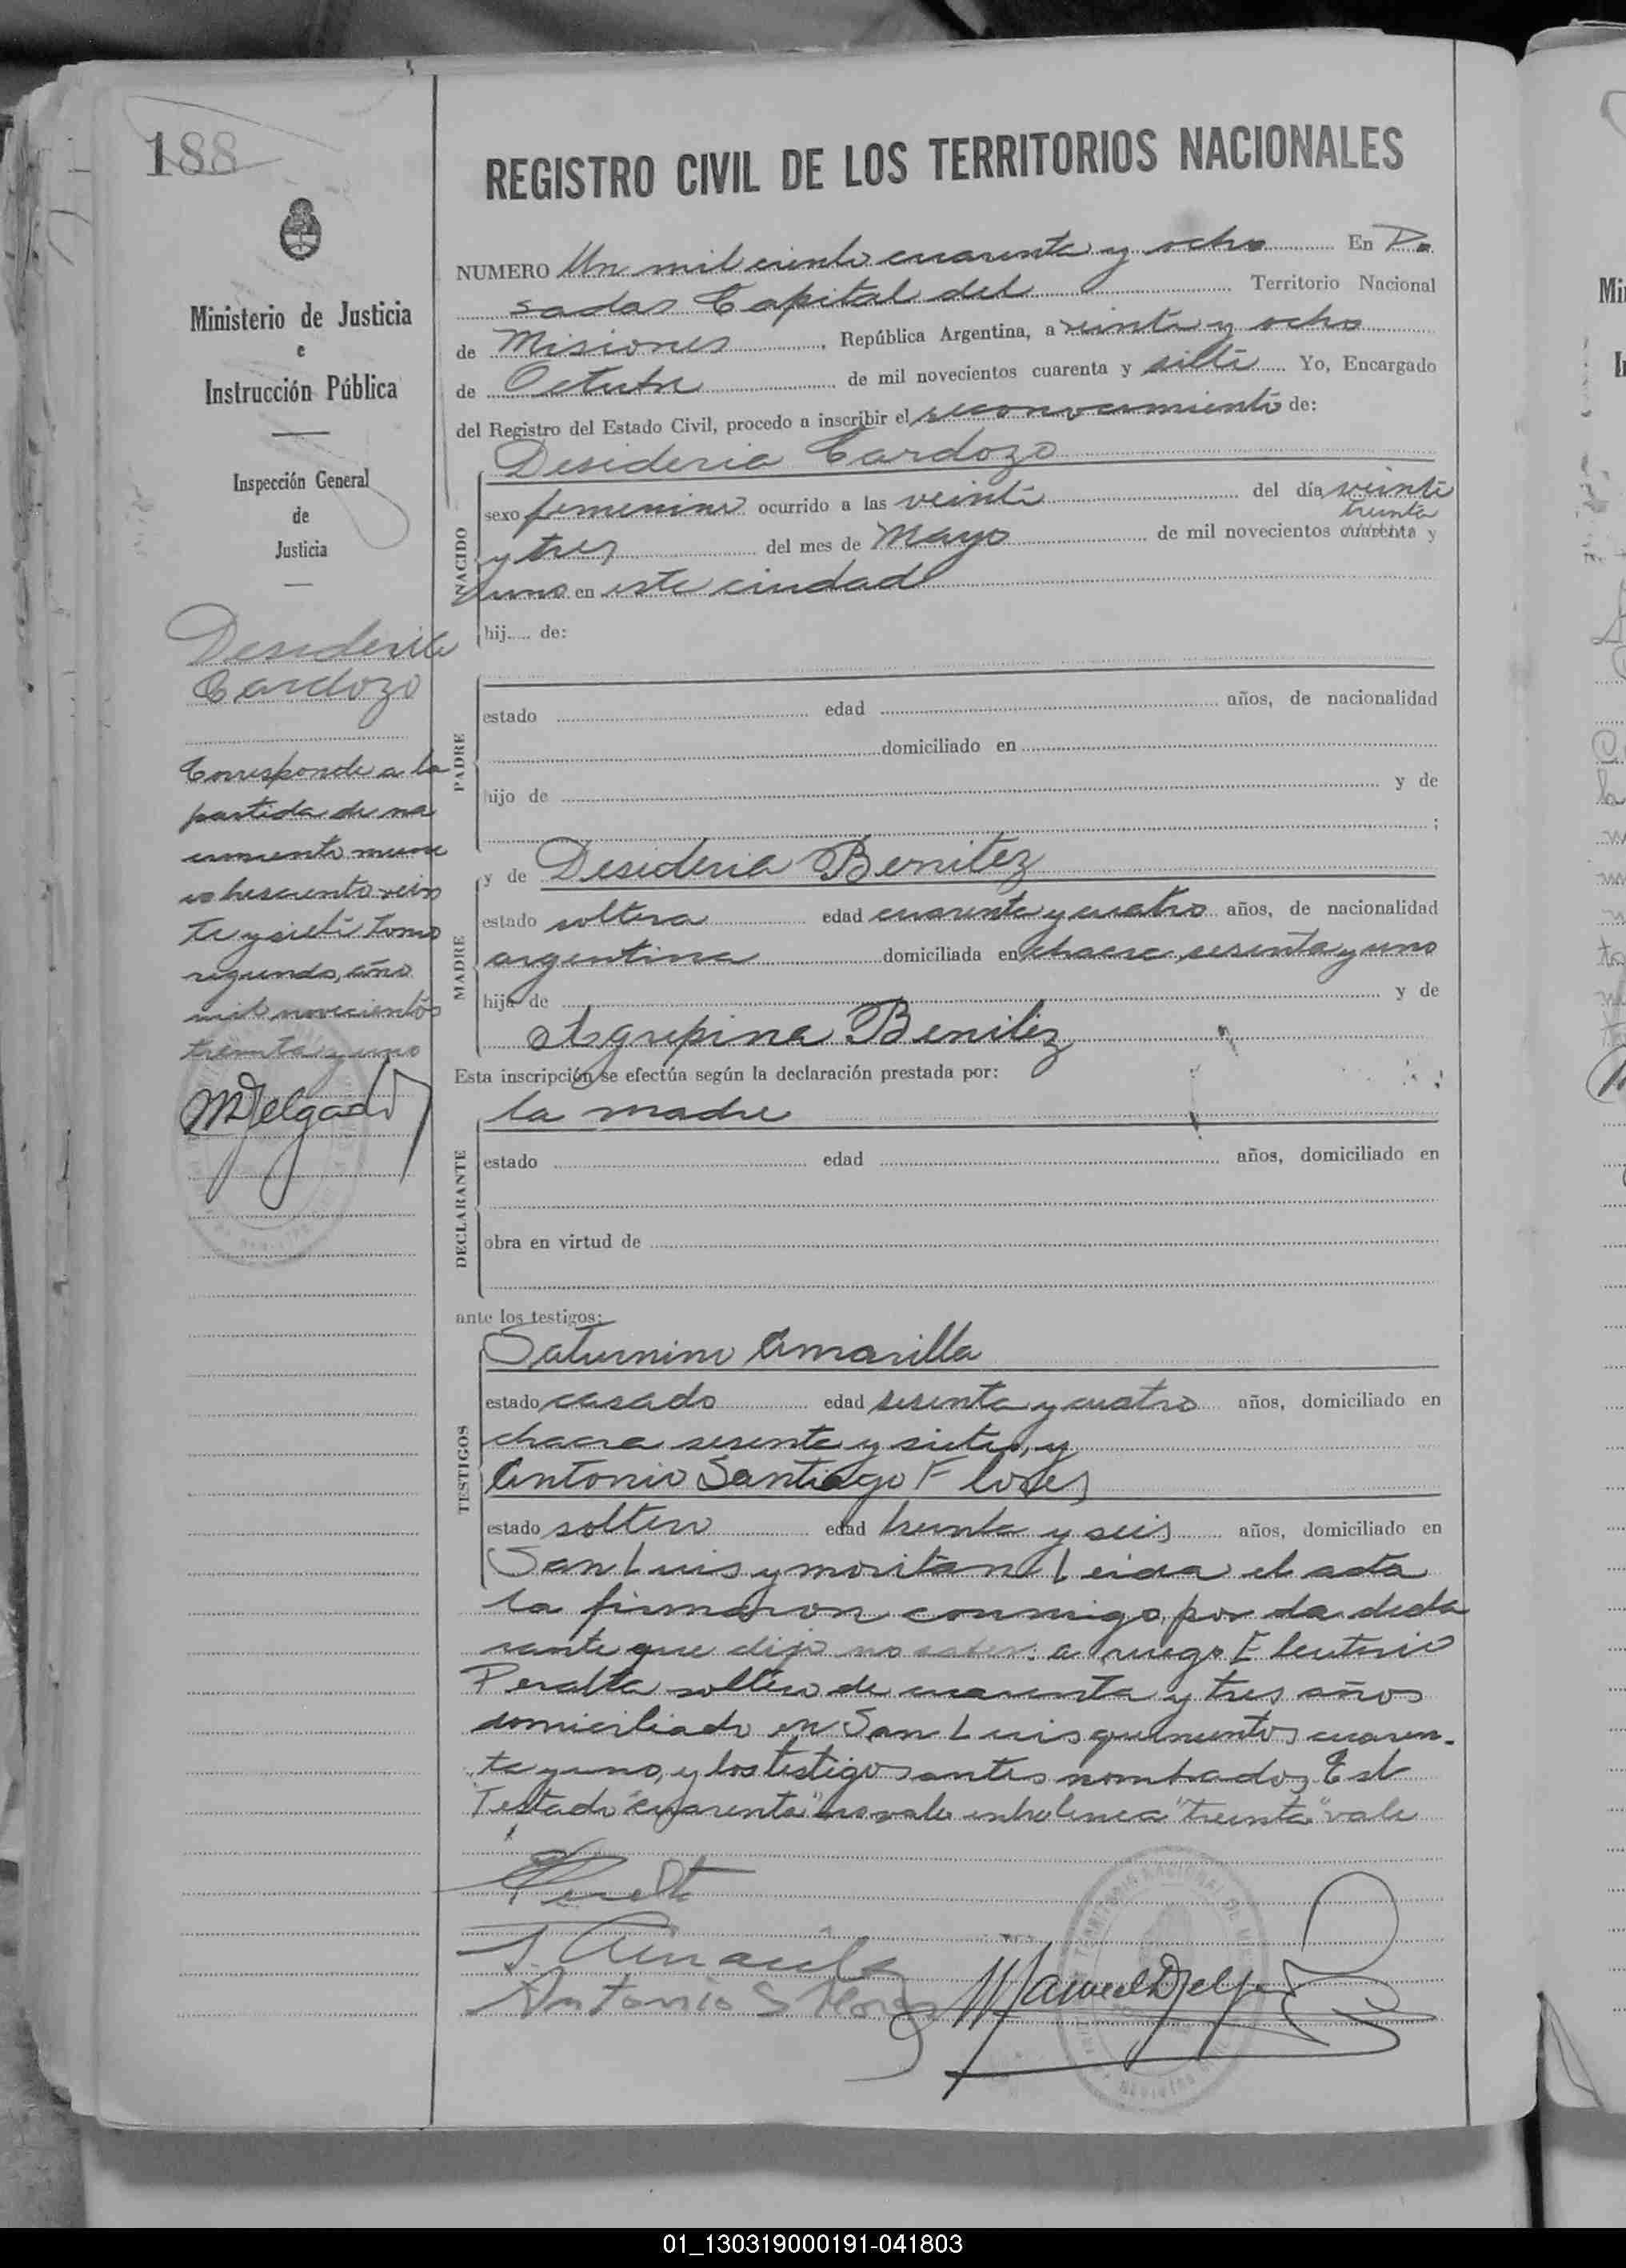 188
Ministerio de Justicia
e
Instrucción Pública
Inspección General
de
Justicia
Desideria
Cardozo
Corresponde a la
partida de na
cimiento nume
ro trescientos vein
te y siete tomo
segundo, año
mil novecientos
treinta y uno
MDelgado
REGISTRO CIVIL DE LOS TERRITORIOS NACIONALES
NUMERO Un mil ciento cuarenta y ocho En Po
sadas Capital del Territorio Nacional
de Misiones, República Argentina, a veinte y ocho
de Octubre de mil novecientos cuarenta y siete Yo, Encargado
del Registro del Estado Civil, procedo a inscribir el reconocimiento de:
Desideria Cardozo
NACIDO
sexo femenino ocurrido a las veinte del día veinte
treinta
y tres del mes de Mayo de mil novecientos cuarenta y
uno en este ciudad
hij... de:
PADRE
estado edad años, de nacionalidad
domiciliado en
hijo de y de
;
MADRE
y de Desideria Benitez
estado soltera edad cuarenta y cuatro años, de nacionalidad
argentina domiciliada en chacra sesenta y uno
hija de y de
Agrepina Benitez
Esta inscripción se efectúa según la declaración prestada por:
la madre
DECLARANTE
estado edad años, domiciliado en
obra en virtud de
ante los testigos:
TESTIGOS
Saturnino Amarilla
estado casado edad sesenta y cuatro años, domiciliado en
chacra sesenta y siete, y
Antonio Santiago Flores
estado soltero edad treinta y seis años, domiciliado en
San Luis y moritan Leida el acta
la firmaron conmigo, por la decla
rante que dijo no saber: a ruego Eleuterio
Peralta soltero de cuarenta y tres años
domiciliado en San Luis quinientos cuaren-
ta y uno, y los testigos antes nombrados
Testado "cuarenta" no vale entrelinea "treinta" vale
Antonio S Flores
Manuel Delgado
01_130319000191-041803